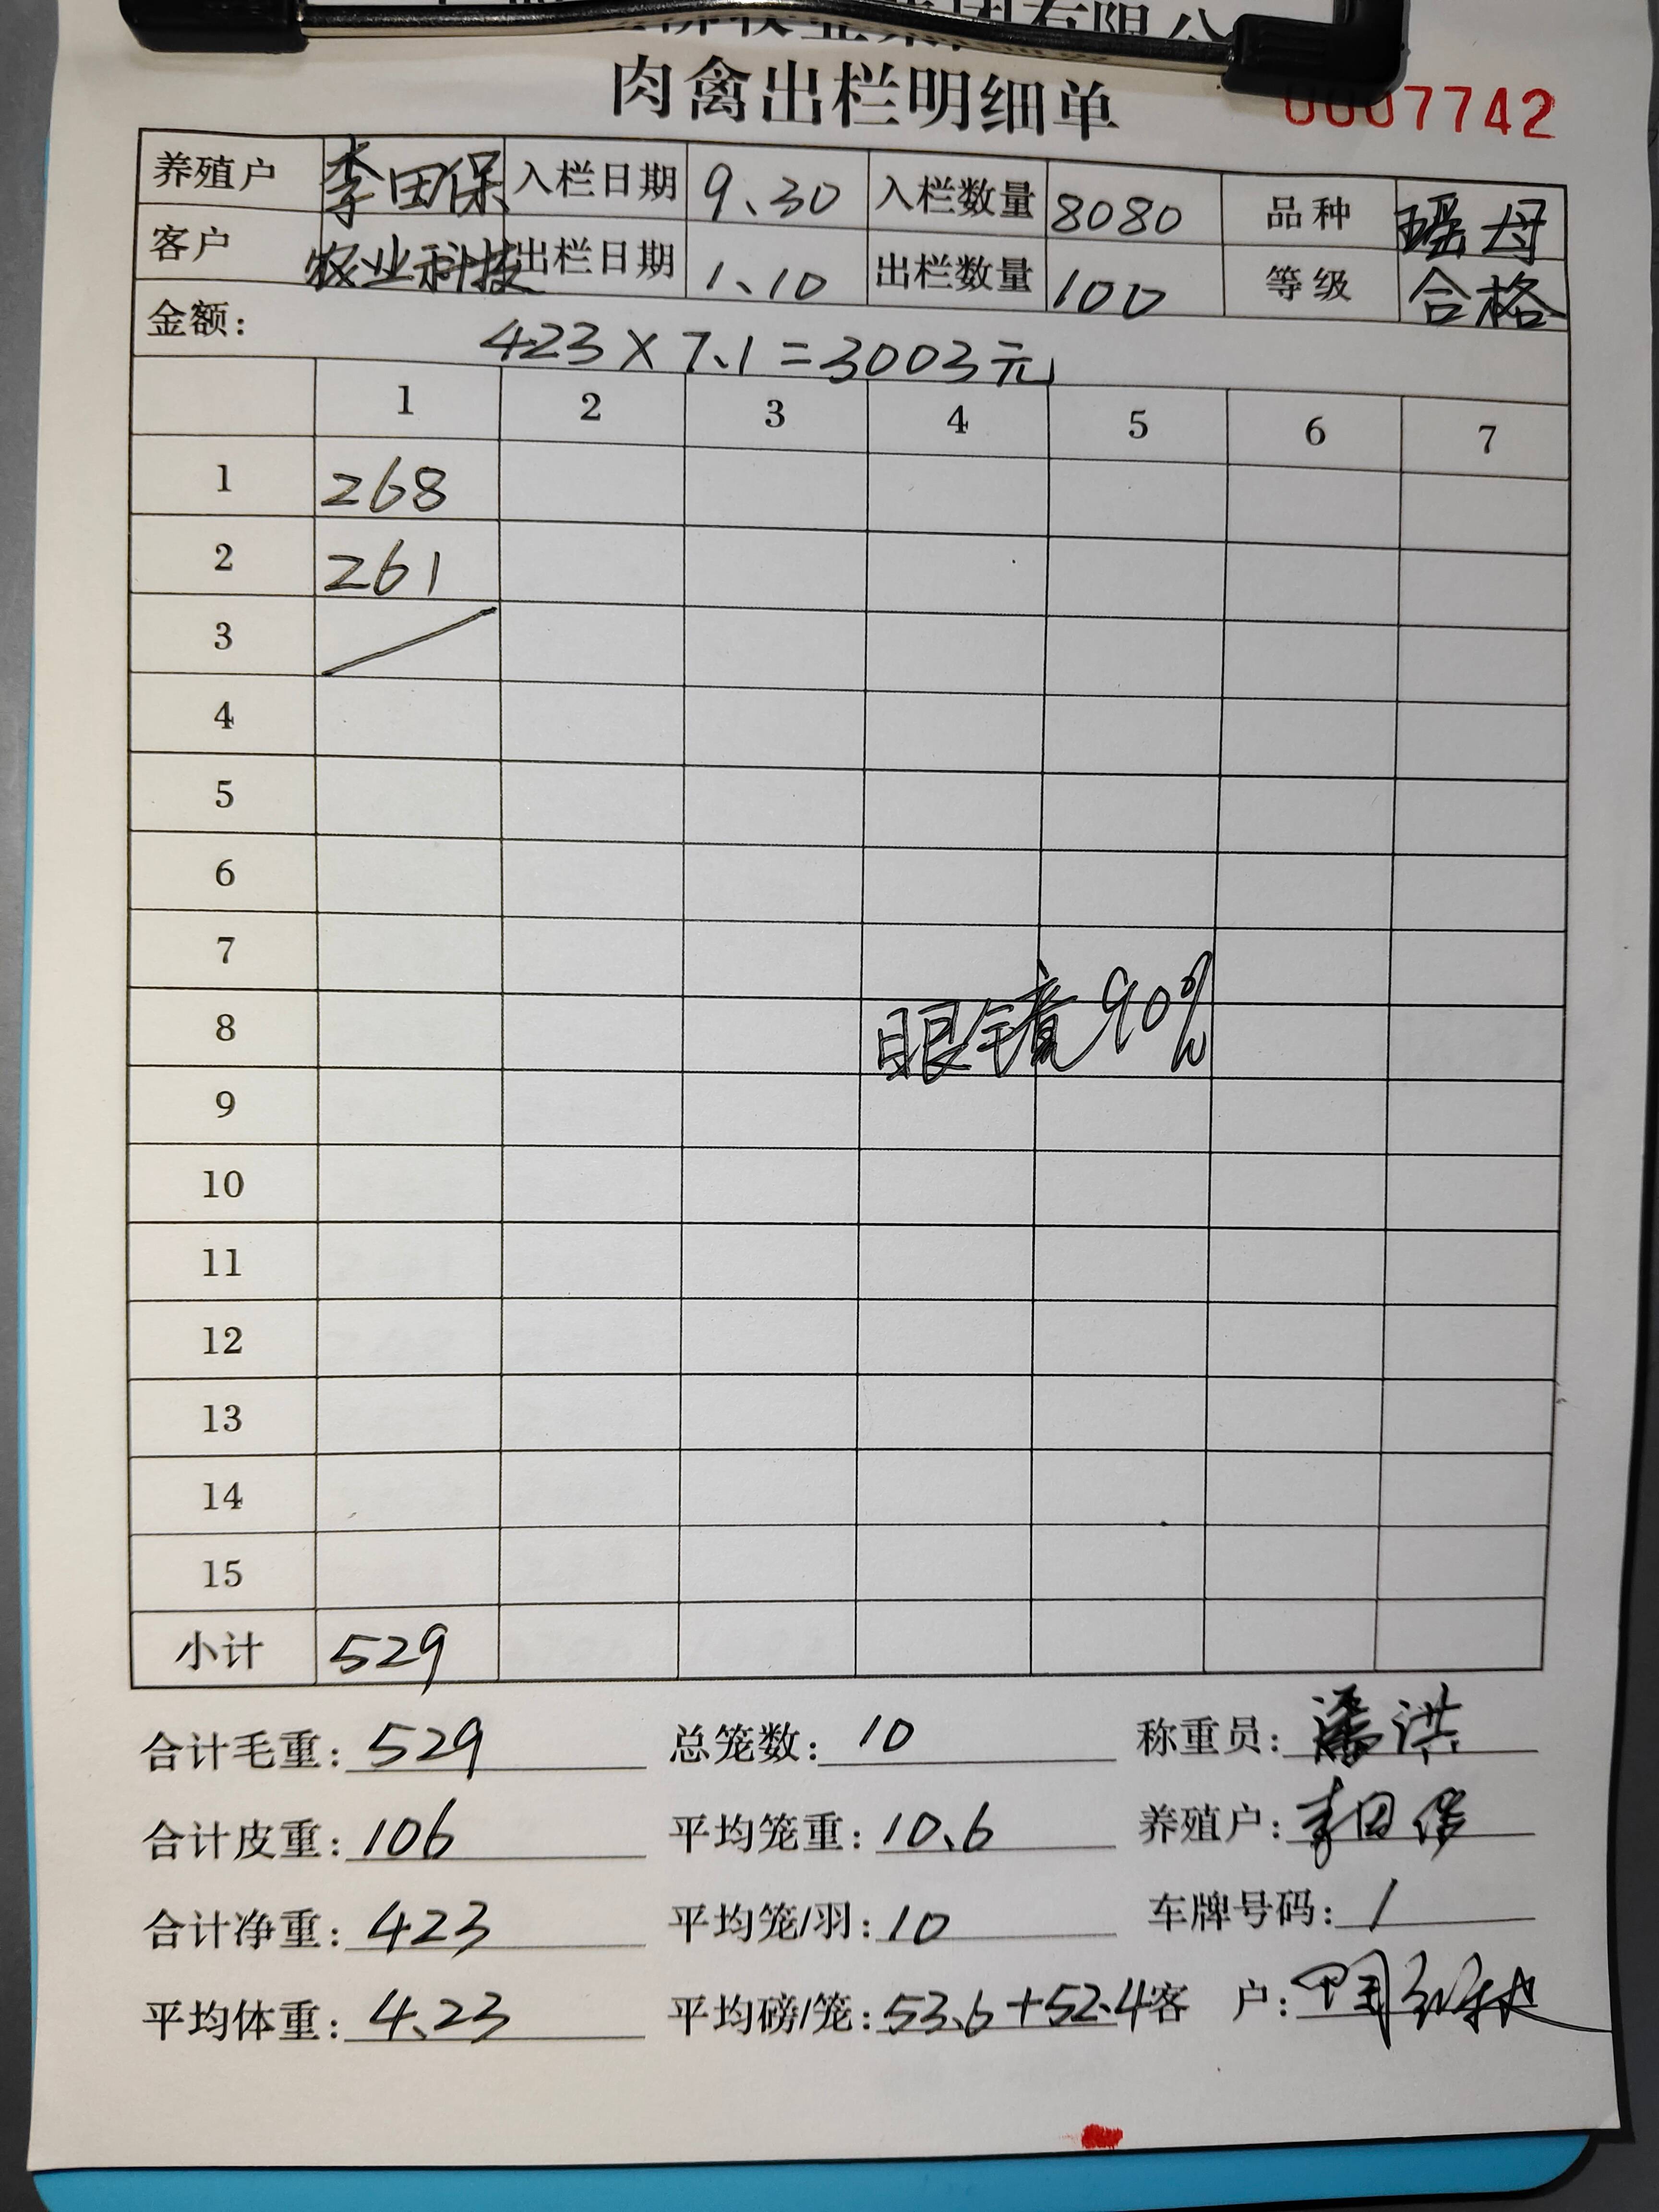 集团有限公
肉禽出栏明细单
0007742
养殖户 李田保 入栏日期 9、30 入栏数量 8080 品种 瑶母
客户 农业科技 出栏日期 1、10 出栏数量 100 等级 合格
金额: 423×7.1=3003元
1 2 3 4 5 6 7
1 268
2 261
3
4
5
6
7
8 眼镜90%
9
10
11
12
13
14
15
小计 529
合计毛重: 529 总笼数: 10 称重员: 潘洪
合计皮重: 106 平均笼重: 10.6 养殖户: 李田保
合计净重: 423 平均笼/羽: 10 车牌号码: /
平均体重: 4.23 平均磅/笼: 53.6+52.4 客 户: